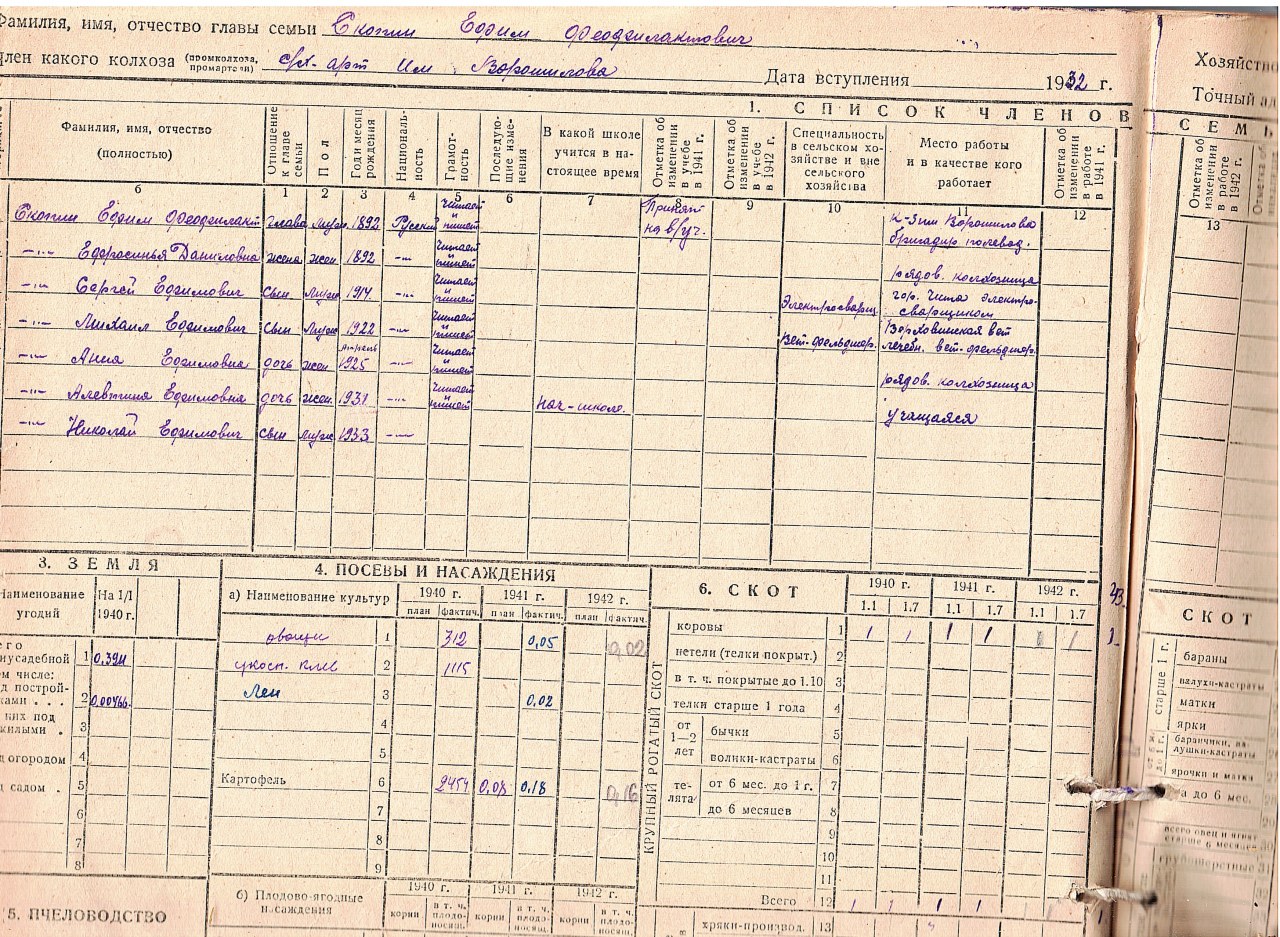 Фамилия, имя, отчество главы семьи Скопин Ефим Феофилактович
Член какого колхоза (промколхоза, промартели) с/х. арт им. Ворошилова Дата вступления 1932 г.
1. СПИСОК ЧЛЕНОВ
Фамилия, имя, отчество (полностью) Отношение к главе семьи Пол Год и месяц рождения Националь-ность Грамот-ность Последую-щие изме-нения В какой школе учится в на-стоящее время Отметка об изменении в учебе в 1941 г. Отметка об изменении в учебе в 1942 г. Специальность в сельском хо-зяйстве и вне сельского хозяйства Место работы и в качестве кого работает Отметка об изменении в работе в 1941 г.
б 1 2 3 4 5 6 7 8 9 10 11 12
Скопин Ефим Феофилакт глава муж. 1892 Русский читает и пишет Принят на в/уч. к-з им Ворошилова бригадир полевод.
-"- Ефросинья Даниловна жена жен 1892 -"- читает пишет рядов. колхозница
-"- Сергей Ефимович сын муж 1914 -"- читает и пишет Электросварщ. гор. Чита электро-сварщиком
-"- Михаил Ефимович сын муж 1922 -"- читает и пишет Вет-фельдшер. вет лечебн. вет-фельдшер.
-"- Анна Ефимовна дочь жен апрель 1925 -"- читает и пишет рядов. колхозница
-"- Алевтина Ефимовна дочь жен. 1931 -"- читает и пишет нач-школе. учащаяся
-"- Николай Ефимович сын муж 1933 -"-
3. ЗЕМЛЯ
Наименование угодий На 1/1 1940 г.
его
нусадебной 1 0,394
ом числе:
д построй-
ками . . . 2 0,00466
них под
жилыми . 3
д огородом 4
д садом . 5
6
7
8
5. ПЧЕЛОВОДСТВО
4. ПОСЕВЫ И НАСАЖДЕНИЯ
а) Наименование культур 1940 г. 1941 г. 1942 г.
план фактич. план фактич. план фактич.
овощи 1 312 0,05 0,02
2 1115
Лен 3 0.02
4
5
Картофель 6 2454 0,08 0,18 0,16
7
8
9
б) Плодово-ягодные насаждения 1940 г. 1941 г. 1942 г.
корни в т. ч. плодо-носящ. корни в т. ч. плодо-носящ. корни в т. ч. плодо-носящ.
6. СКОТ 1940 г. 1941 г. 1942 г.
1.1 1.7 1.1 1.7 1.1 1.7
КРУПНЫЙ РОГАТЫЙ СКОТ
коровы 1 1 1 1 1 1 1 1
нетели (телки покрыт.) 2
в т. ч. покрытые до 1.10 3
телки старше 1 года 4
от 1—2 лет бычки 5
волики-кастраты 6
те-лята от 6 мес. до 1 г. 7
до 6 месяцев 8
9
10
11
Всего 12 1 1 1 1 1 1
хряки-производ. 13
Хозяйство
Точный ад
СЕМЬ
Отметка об изменении в работе в 1942 г.
13
СКОТ
старше 1 г.
бараны
валухи-кастраты
матки
ярки
до 1 г.
баранчики, ва-лушки-кастраты
ярочки и матки
до 6 мес.
всего овец и ягнят старше 6 месяцев 30
грубошерстные 31